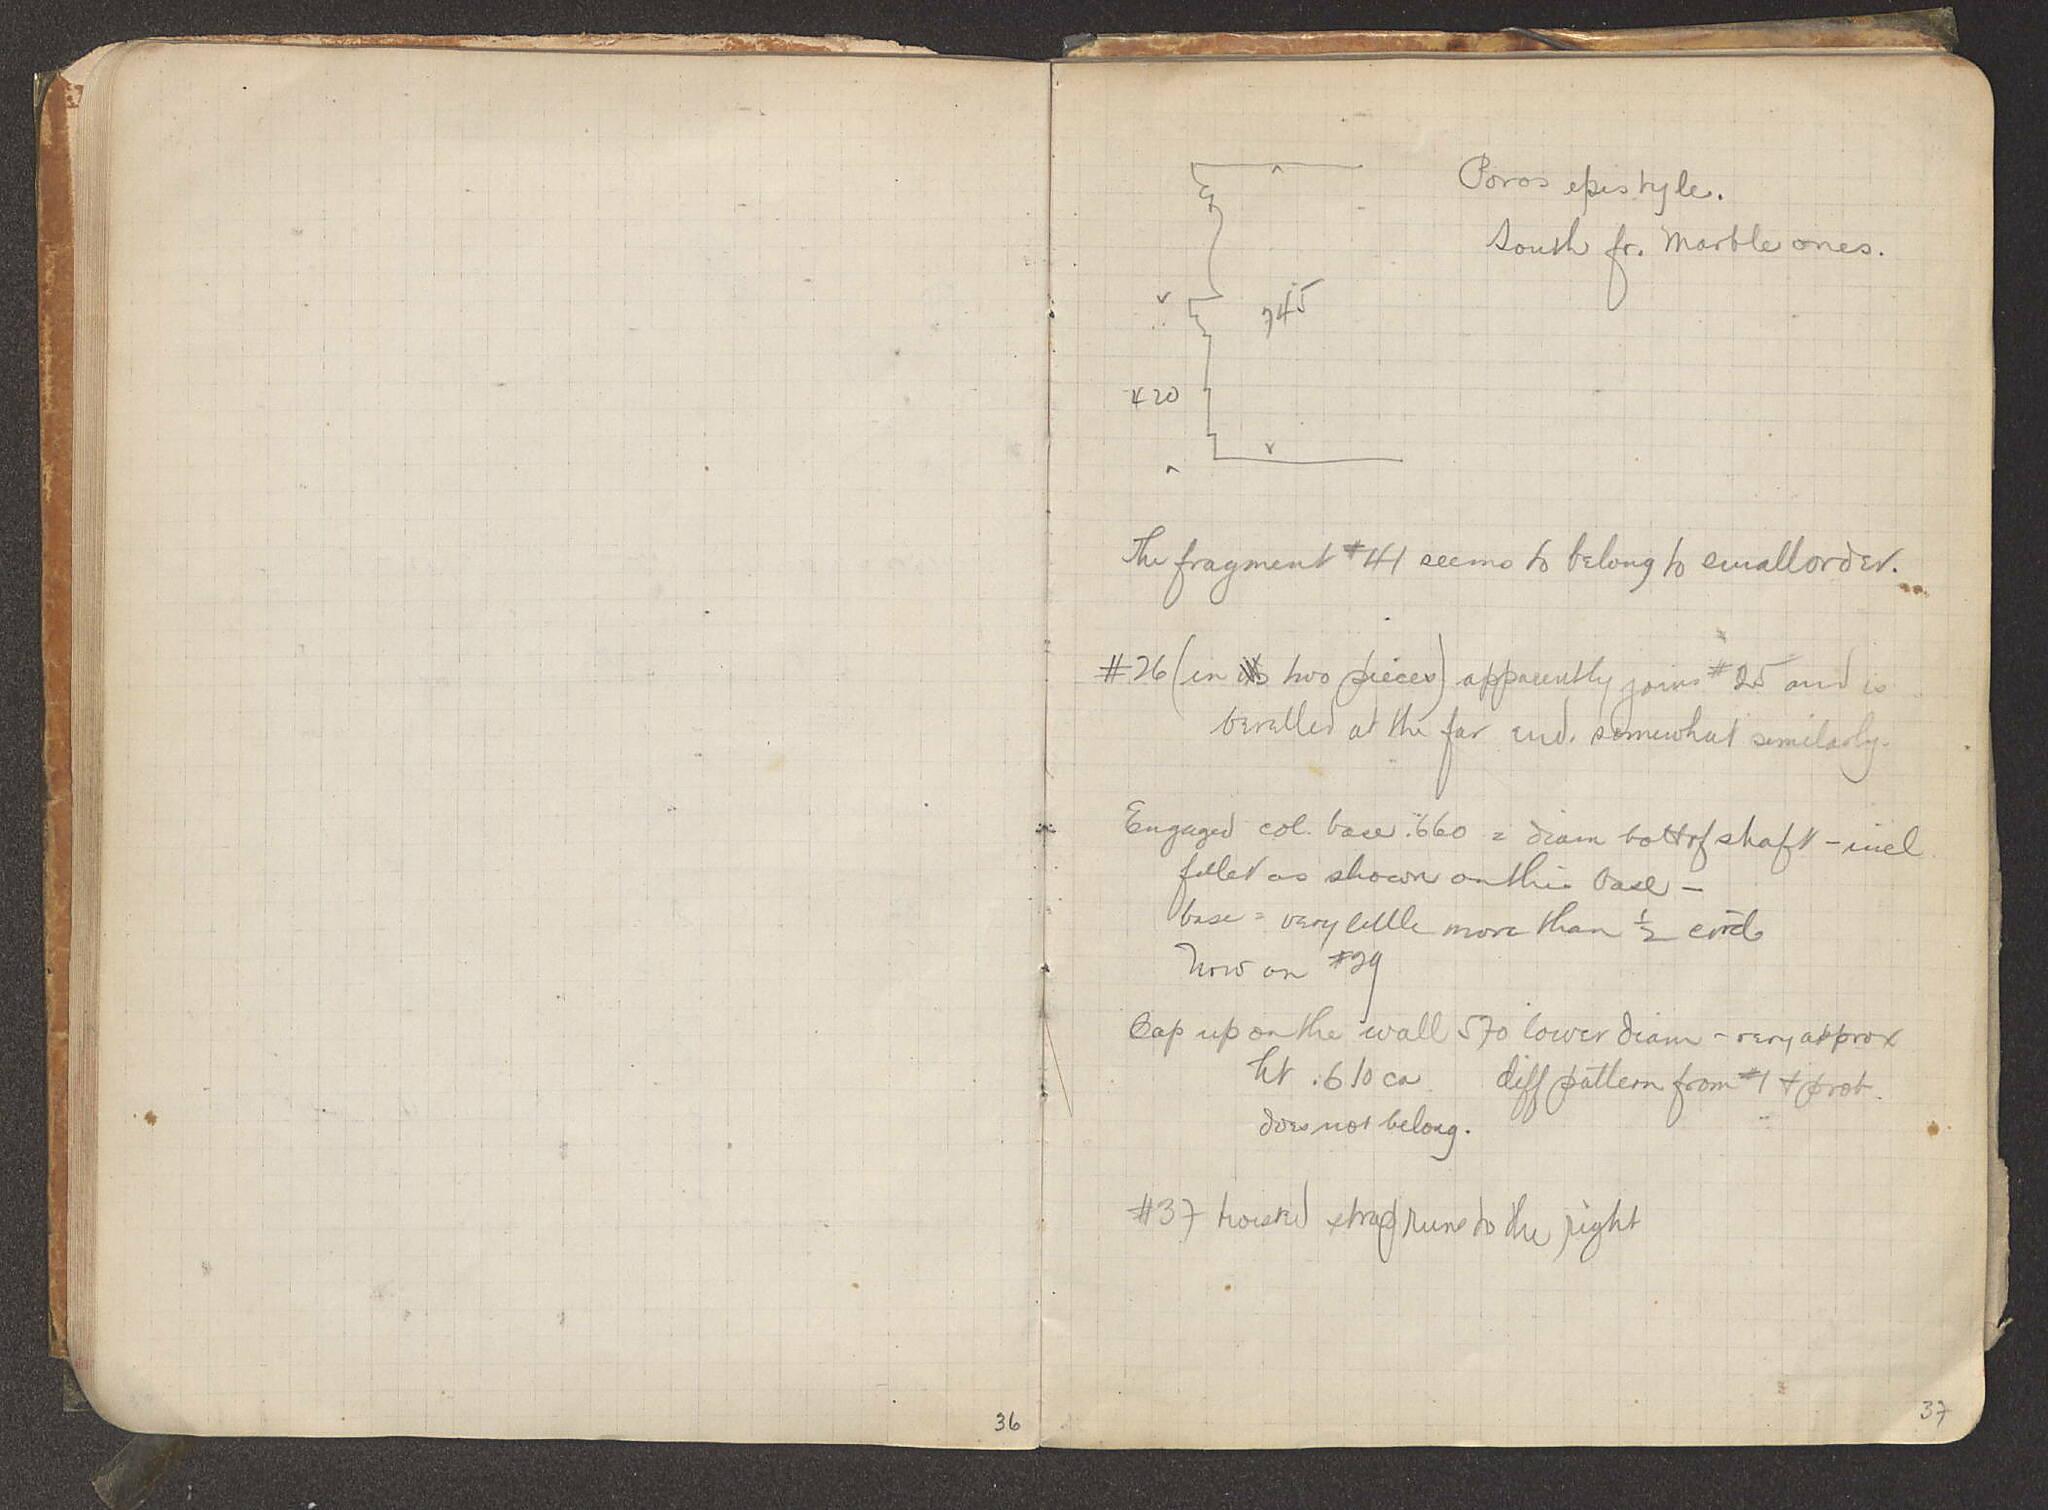 Poros epistyle.
South fr. Marble ones.
745
420
The fragment #41 seems to belong to small order.
#26 (in two pieces) apparently joins #25 and is
bevelled at the far end. somewhat similarly.
Engaged col. base .660 = diam bott of shaft - incl
fillet as shown on this base -
base = very little more than ½ circle
Now on #29
Cap up on the wall 570 lower diam - very approx
ht .610 ca diff pattern from #1 + prob.
does not belong.
#37 twisted strap runs to the right
36
37